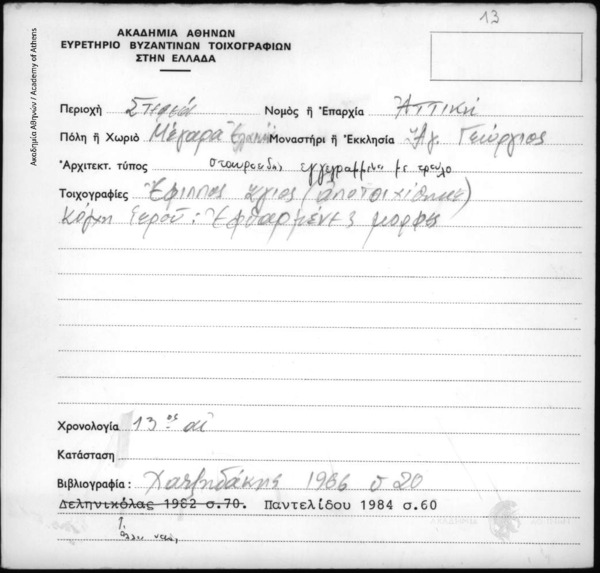 13
ΑΚΑΔΗΜΙΑ ΑΘΗΝΩΝ
ΕΥΡΕΤΗΡΙΟ ΒΥΖΑΝΤΙΝΩΝ ΤΟΙΧΟΓΡΑΦΙΩΝ
ΣΤΗΝ ΕΛΛΑΔΑ
Ακαδημία Αθηνών / Academy of Athens
Περιοχή Στερεά Νομὸς ἤ Ἐπαρχία Ἀττική
Πόλη ἤ Χωριὸ Μέγαρα Μοναστήρι ἤ Ἐκκλησία Ἅγ. Γεώργιος
Ἀρχιτεκτ. τύπος σταυροειδής ἐγγεγραμμένος με τρούλο
Τοιχογραφίες Ἔφιππος ἅγιος (ἀποτοιχίθηκε)
Κόγχη Ἱεροῦ: Ἐφθαρμένες μορφές
Χρονολογία 13ος αἰ
Κατάσταση
Βιβλιογραφία: Χατζηδάκης 1966 σ 20
Δεληνικόλας 1982 σ.70. Παντελίδου 1984 σ.60
1.